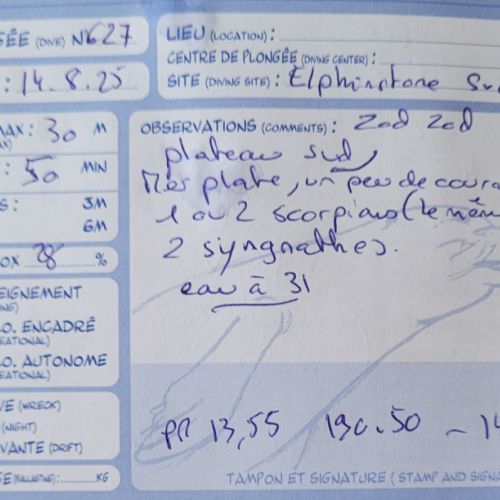 GÉE (DIVE) N° 627
LIEU (LOCATION) :
CENTRE DE PLONGÉE (DIVING CENTER) :
: 14.8.25
SITE (DIVING SITE) : Elphinstone Sud
MAX : 30 M
OBSERVATIONS (COMMENTS) : Zod Zod
plateau sud,
: 50 MIN
Mer plate, un peu de coura
S : 3M
1 ou 2 scorpions (le mêm
6M
2 syngnathes.
OX 28 %
eau à 31
EIGNEMENT
O. ENCADRÉ
EATIONAL)
O. AUTONOME
EATIONAL)
VE (WRECK)
(NIGHT)
VANTE (DRIFT)
13,55 190.50 - 14
GE (BALLASTING) : KG
TAMPON ET SIGNATURE (STAMP AND SIGNA